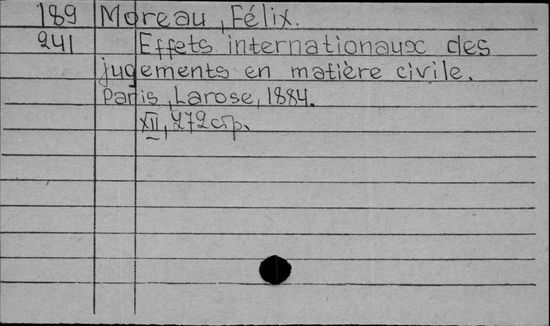 189 Moreau, Félix.
241 Effets internationaux des
jugements en matière civile.
Paris, Larose, 1884.
XII, 272 стр.